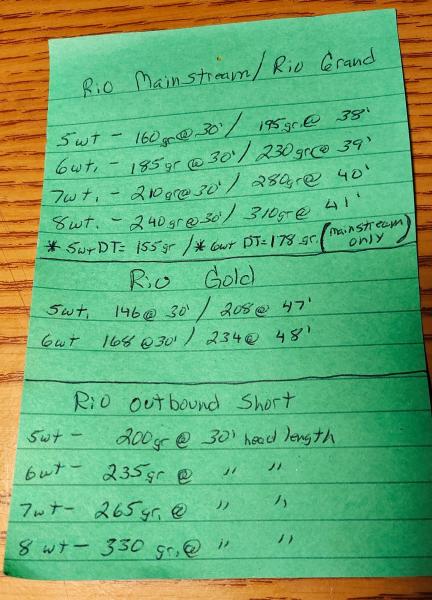 Rio Mainstream/Rio Grand
5wt - 160gr@30'/ 195gr.@ 38'
6wt. - 185gr@30'/230gr@ 39'
7wt. - 210gr@30'/ 280gr@ 40'
8wt. - 240gr@30'/ 310gr@ 41'
* 5wt DT= 155gr /* 6wt DT=178 gr. (mainstream only)
Rio Gold
5wt. 146@ 30' / 208@ 47'
6wt 168@30' / 234@ 48'
Rio outbound Short
5wt - 200gr@ 30' head length
6wt - 235gr @ " "
7wt - 265gr. @ " "
8wt - 330 gr. @ " "